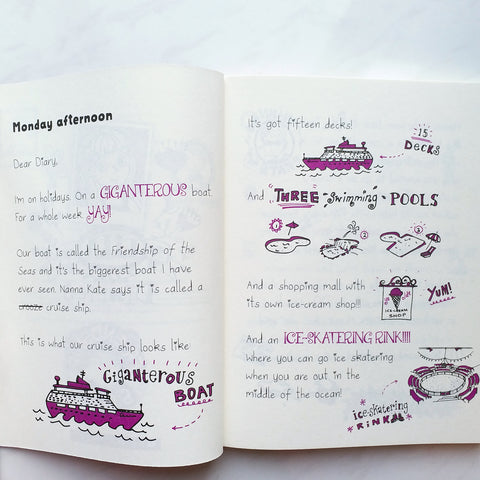 Monday afternoon
Dear Diary,
I'm on holidays. On a GIGANTEROUS boat.
For a whole week. YAY!
Our boat is called the Friendship of the
Seas and it's the biggerest boat I have
ever seen. Nanna Kate says it is called a
snooze cruise ship.
This is what our cruise ship looks like:
Giganterous
BOAT
It's got fifteen decks!
15
DECKS
And THREE Swimming POOLS
1
2
3
And a shopping mall with
its own ice-cream shop!!!
ICE-CREAM
SHOP
YUM!
And an ICE-SKATERING RINK!!!!
Where you can go ice skating
when you are out in the
middle of the ocean!
ice-skatering
RINK